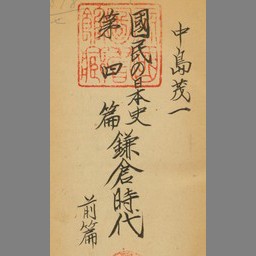 中島茂一
國民の日本史
第四篇
鎌倉時代
前篇